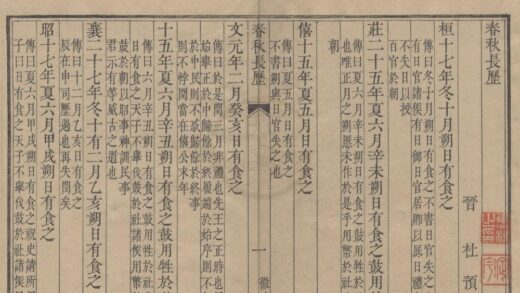 春秋長歷
晉 杜預
桓十七年冬十月朔日有食之
傳曰冬十月朔日有食之不書日官失之
有日官諸侯有日御日官居卿以厎日禮
不失日以授
百官於朝
莊二十五年夏六月辛未朔日有食之鼓用
傳曰夏六月辛未朔日有食之鼓用牲於社
也唯正月之朔慝未作於是乎用幣於社
朝
僖十五年夏五月日有食之
傳曰夏五月日有食之
不書朔與日官失之也
春秋長歷 一
文元年二月癸亥日有食之
傳曰於是閏三月非禮也先王之正時也
始舉正於中歸餘於終履端於始序則不
於中民則不惑歸餘於終事
則不悖閏當在僖公末年
十五年夏六月辛丑朔日有食之鼓用牲於
傳曰夏六月辛丑朔日有食之鼓用牲於社
日有食之天子不舉伐鼓於社諸侯用幣
鼓於朝以昭事神訓民事
君示有等威古之道也
襄二十七年冬十有二月乙亥朔日有食之
傳曰十一月乙亥日有食之
辰在申司歷過也再失閏矣
昭十七年夏六月甲戌朔日有食之
傳曰夏六月甲戌朔日有食之祝史請所用
子曰日有食之天子不舉伐鼓於社諸侯